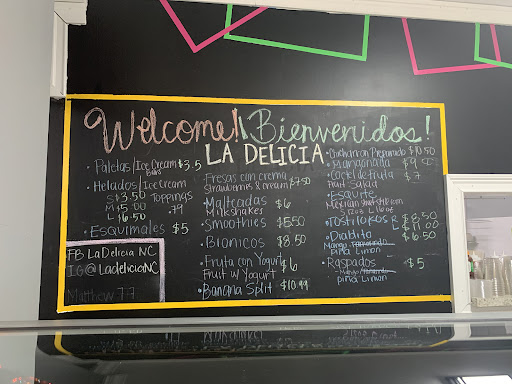 Welcome! Bienvenidos!
LA DELICIA
• Paletas/Ice Cream Bars $3.5
• Helados/Ice Cream
S $3.50 Toppings
M $5.00 .79
L $6.50
• Esquimales $5
FB La Delicia NC
IG @LadeliciaNC
Matthew 7:7
Fresas con crema
Strawberries & cream $7.50
• Malteadas $6
Milkshakes
• Smoothies $5.50
• Bionicos $8.50
• Fruta con Yogurt
Fruit w Yogurt $6
• Banana Split $10.99
• Chicharron Preparado $10.50
• Mangonada $9
• Coctel de fruta $7
Fruit Salad
• Esquite
Mexican street style corn
S 12oz L 16oz
• Tostilokos R $8.50
L $11.00
• Diablito $6.50
Mango Tamarindo
Piña Limon
• Raspados $5
Mango Tamarindo
Piña Limon